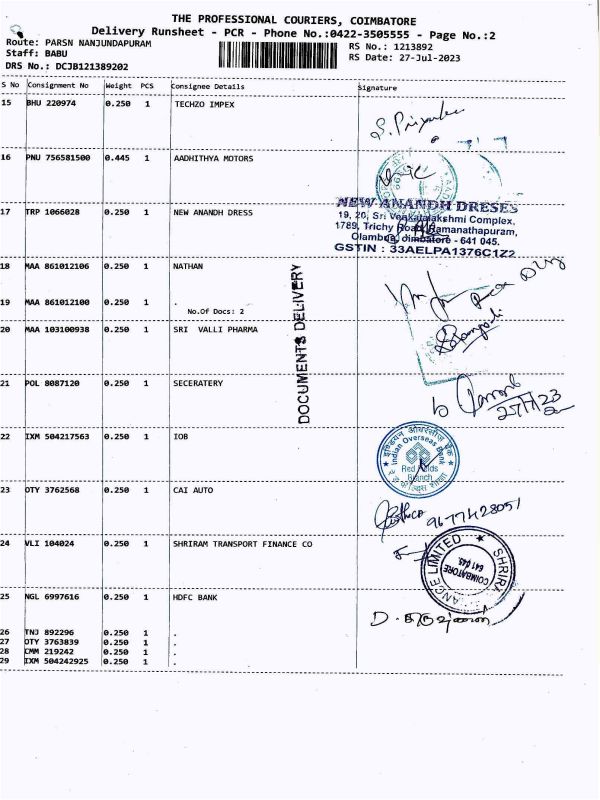 THE PROFESSIONAL COURIERS, COIMBATORE
Delivery Runsheet - PCR - Phone No.:0422-3505555 - Page No.:2
Route: PARSN NANJUNDAPURAM
RS No.: 1213892
Staff: BABU
RS Date: 27-Jul-2023
DRS No.: DCJB121389202
S No Consignment No Weight PCS Consignee Details Signature
15 BHU 220974 0.250 1 TECHZO IMPEX
S. Priyanka
16 PNU 756581500 0.445 1 AADHITHYA MOTORS
17 TRP 1066028 0.250 1 NEW ANANDH DRESS
NEW ANANDH DRESES
19, 20, Sri Venkatalakshmi Complex,
1789, Trichy Road, Ramanathapuram,
Olambus, Coimbatore - 641 045.
GSTIN : 33AELPA1376C1Z2
18 MAA 861012106 0.250 1 NATHAN
19 MAA 861012100 0.250 1 .
No.Of Docs: 2
DOCUMENTS DELIVERY
20 MAA 103100938 0.250 1 SRI VALLI PHARMA
21 POL 8087120 0.250 1 SECERATERY
27/7/23
22 IXM 504217563 0.250 1 IOB
इण्डियन ओवरसीज़ बैंक
Indian Overseas Bank
Red Fields
Branch
23 OTY 3762568 0.250 1 CAI AUTO
9677428051
24 VLI 104024 0.250 1 SHRIRAM TRANSPORT FINANCE CO
SHRIRA
ANCE LIMITED
COIMBATORE
641 045.
25 NGL 6997616 0.250 1 HDFC BANK
26 TNJ 892296 0.250 1 .
27 OTY 3763839 0.250 1 .
28 CMM 219242 0.250 1 .
29 IXM 504242925 0.250 1 .